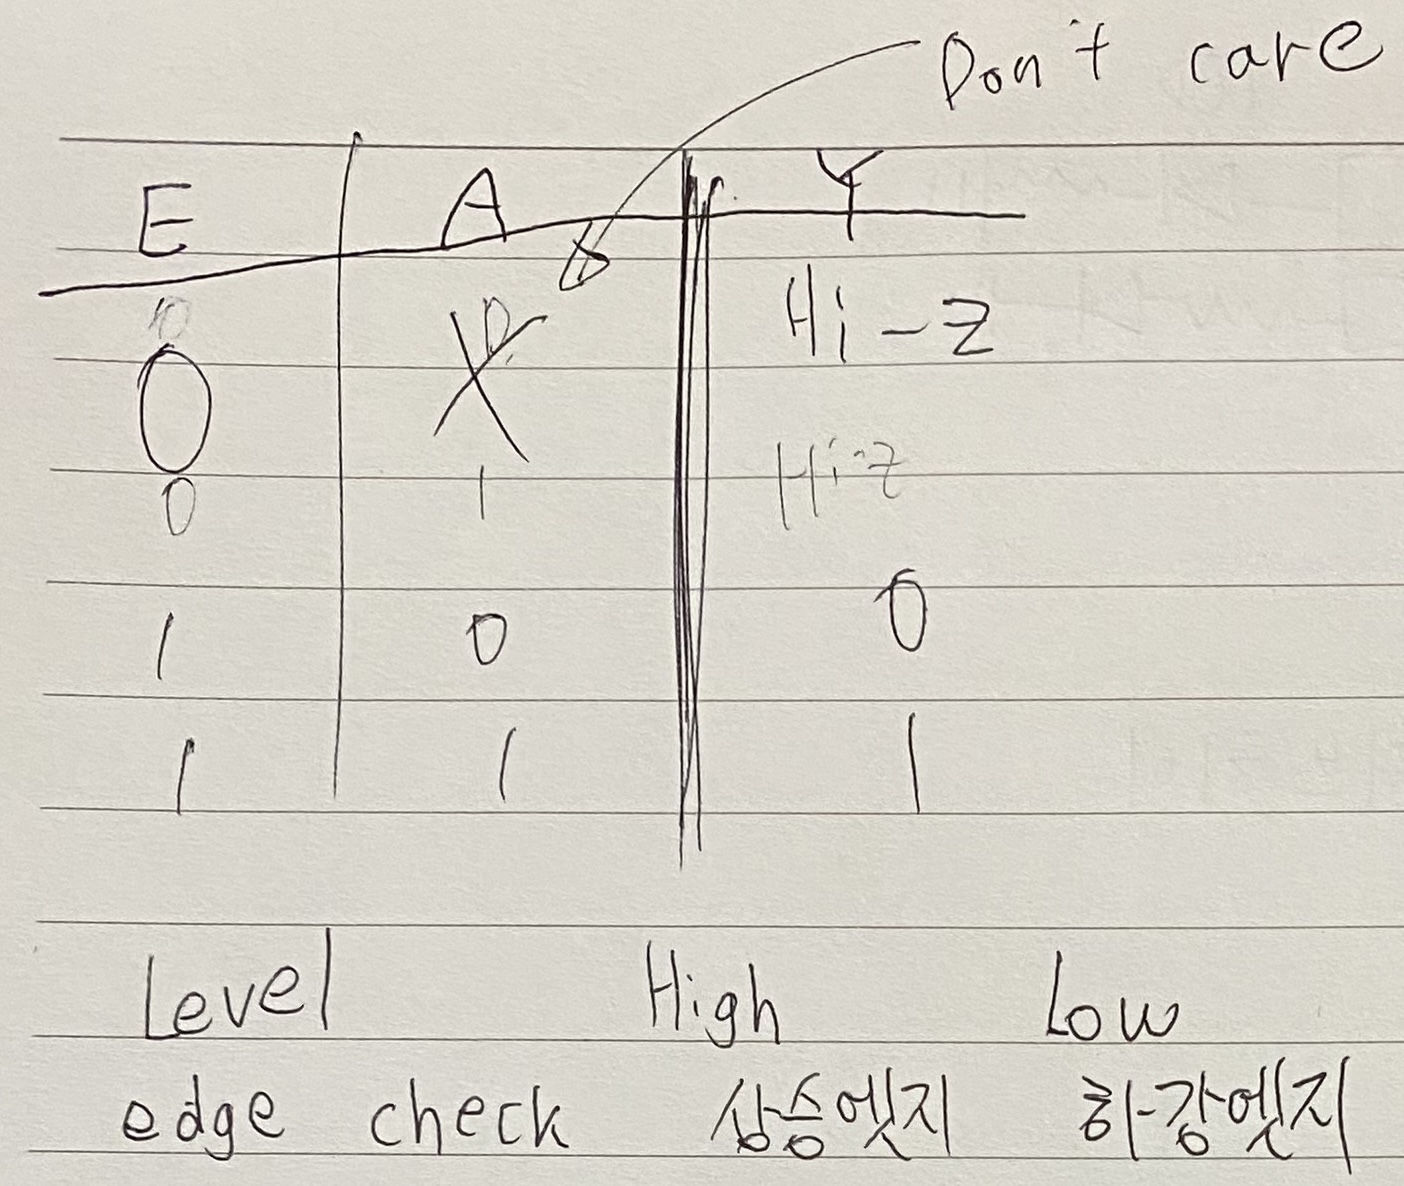 Don't care
E A Y
0 0
0 X Hi-Z
0 1 Hi-Z
1 0 0
1 1 1
Level High Low
edge check 상승엣지 하강엣지